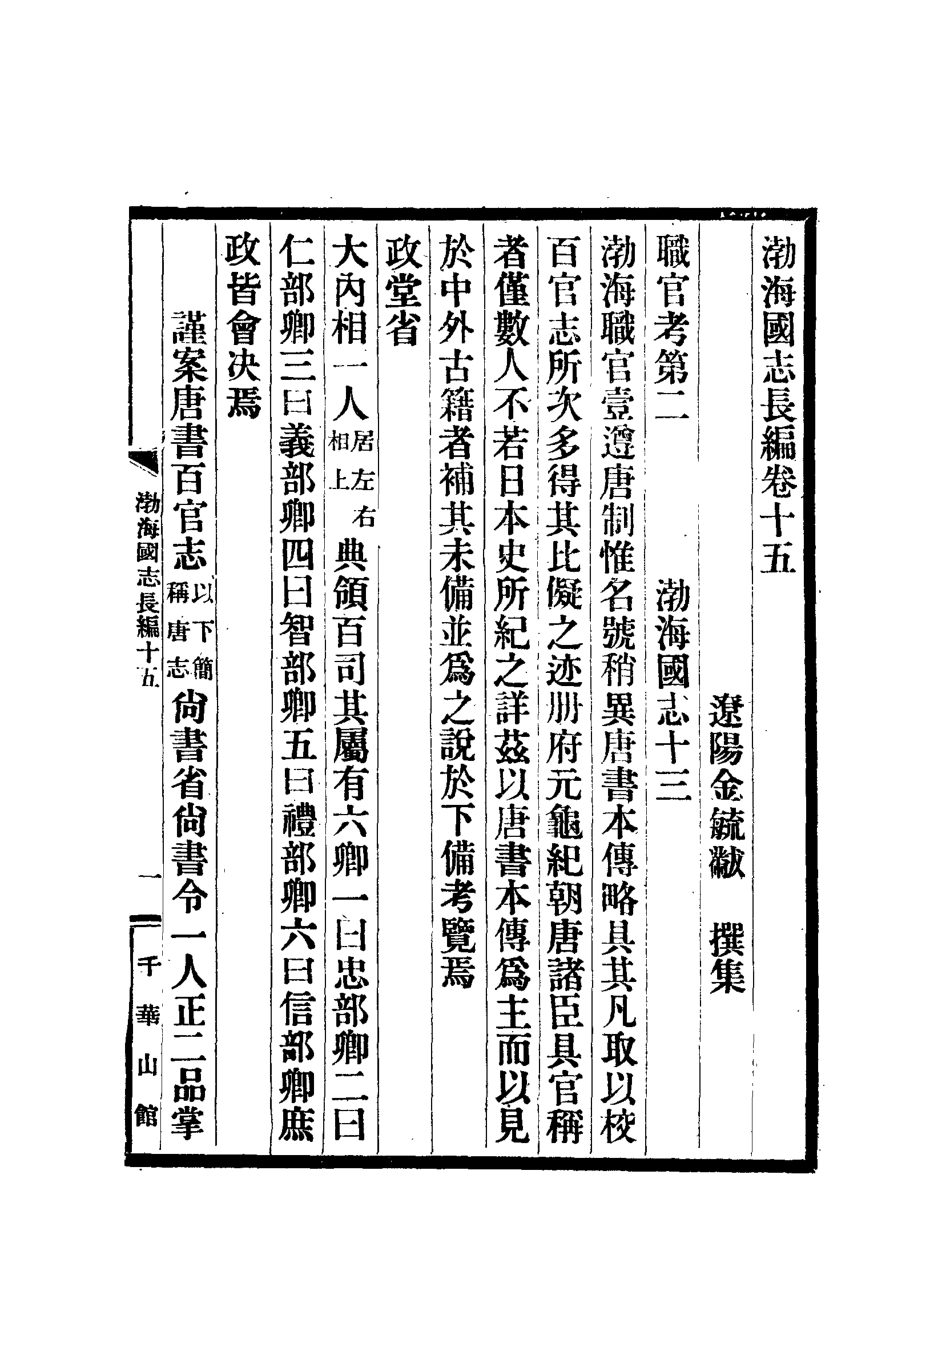 渤海國志長編卷十五
遼陽金毓黻　撰集
職官考第二　渤海國志十三
渤海職官壹遵唐制惟名號稍異唐書本傳略具其凡取以校
百官志所次多得其比儗之迹册府元龜紀朝唐諸臣具官稱
者僅數人不若日本史所紀之詳茲以唐書本傳爲主而以見
於中外古籍者補其未備並爲之說於下備考覽焉
政堂省
大內相一人居左右相上典領百司其屬有六卿一曰忠部卿二曰
仁部卿三曰義部卿四曰智部卿五曰禮部卿六曰信部卿庶
政皆會決焉
謹案唐書百官志以下簡稱唐志尚書省尚書令一人正二品掌
渤海國志長編十五　一　千華山館